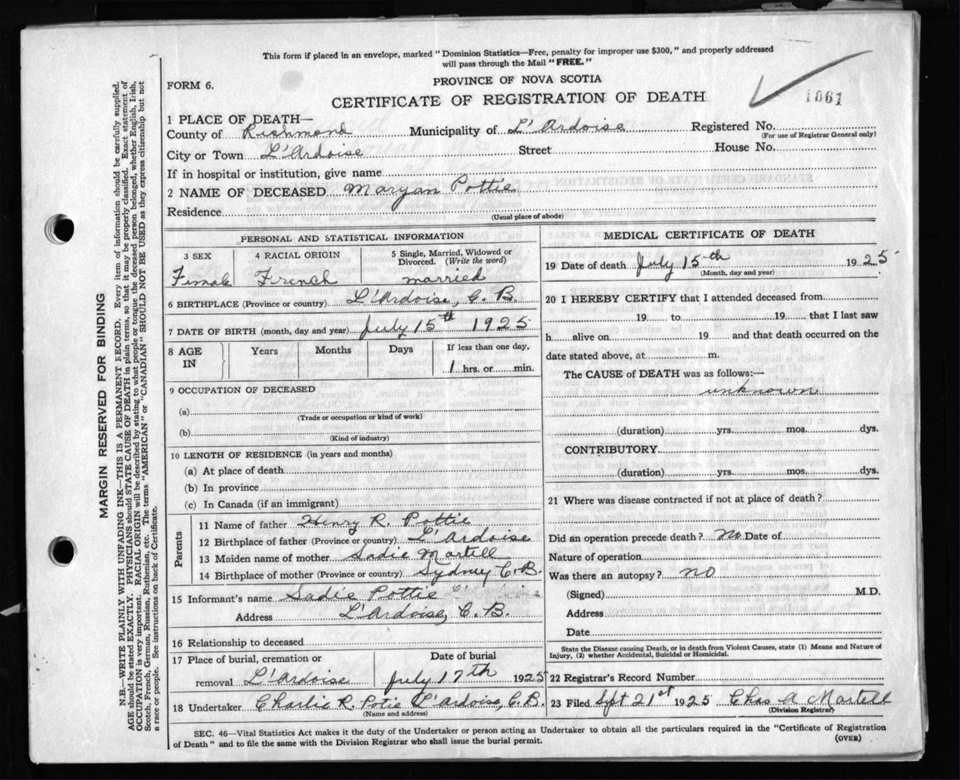 This form if placed in an envelope, marked "Dominion Statistics—Free, penalty for improper use $300," and properly addressed
will pass through the Mail "FREE."
FORM 6.
PROVINCE OF NOVA SCOTIA
CERTIFICATE OF REGISTRATION OF DEATH
1861
1 PLACE OF DEATH—
County of Richmond Municipality of L'Ardoise Registered No.
(For use of Registrar General only)
City or Town L'Ardoise Street House No.
If in hospital or institution, give name
2 NAME OF DECEASED Maryan Pottie
Residence
(Usual place of abode)
PERSONAL AND STATISTICAL INFORMATION
3 SEX 4 RACIAL ORIGIN 5 Single, Married, Widowed or
Divorced. (Write the word)
Female French married
6 BIRTHPLACE (Province or country) L'Ardoise, C. B.
7 DATE OF BIRTH (month, day and year) July 15th 1925
8 AGE IN Years Months Days If less than one day,
1 hrs. or min.
9 OCCUPATION OF DECEASED
(a)
(Trade or occupation or kind of work)
(b)
(Kind of industry)
10 LENGTH OF RESIDENCE (in years and months)
(a) At place of death
(b) In province
(c) In Canada (if an immigrant)
Parents
11 Name of father Henry R. Pottie
12 Birthplace of father (Province or country) L'Ardoise
13 Maiden name of mother Sadie Martell
14 Birthplace of mother (Province or country) Sydney C.B.
15 Informant's name Sadie Pottie
Address L'Ardoise, C. B.
16 Relationship to deceased
17 Place of burial, cremation or Date of burial
removal L'Ardoise July 17th 1925
18 Undertaker Charlie R. Potie L'Ardoise, C.B.
(Name and address)
MEDICAL CERTIFICATE OF DEATH
19 Date of death July 15th 1925
(Month, day and year)
20 I HEREBY CERTIFY that I attended deceased from
19 to 19 that I last saw
h alive on 19 and that death occurred on the
date stated above, at m.
The CAUSE of DEATH was as follows:—
unknown
(duration) yrs. mos. dys.
CONTRIBUTORY
(duration) yrs. mos. dys.
21 Where was disease contracted if not at place of death?
Did an operation precede death? no Date of
Nature of operation
Was there an autopsy? no
(Signed) M.D.
Address
Date
State the Disease causing Death, or in death from Violent Causes, state (1) Means and Nature of
Injury, (2) whether Accidental, Suicidal or Homicidal.
22 Registrar's Record Number
23 Filed Spt 21st 1925 Chas A Martell
(Division Registrar)
SEC. 46—Vital Statistics Act makes it the duty of the Undertaker or person acting as Undertaker to obtain all the particulars required in the "Certificate of Registration
of Death" and to file the same with the Division Registrar who shall issue the burial permit.
(OVER)
MARGIN RESERVED FOR BINDING
N.B.—WRITE PLAINLY WITH UNFADING INK—THIS IS A PERMANENT RECORD. Every item of information should be carefully supplied.
AGE should be stated EXACTLY. PHYSICIANS should STATE CAUSE OF DEATH in plain terms, so that it may be properly classified. Exact statement of
OCCUPATION is very important. RACIAL ORIGIN will be described by stating to what people or tongue the deceased person belonged, whether English, Irish,
Scotch, French, German, Russian, Ruthenian, etc. The terms "AMERICAN" or "CANADIAN" SHOULD NOT BE USED as they express citizenship but not
a race or people. See instructions on back of Certificate.